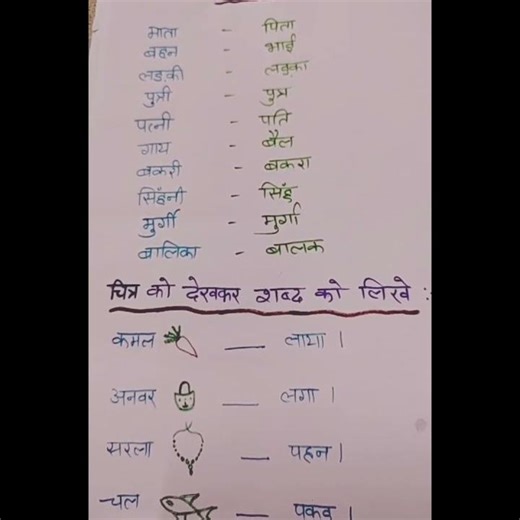 माता - पिता
बहन - भाई
लड़की - लड़का
पुत्री - पुत्र
पत्नी - पति
गाय - बैल
बकरी - बकरा
सिंहनी - सिंह
मुर्गी - मुर्गा
बालिका - बालक
चित्र को देखकर शब्द को लिखे :
कमल — लाया ।
अनवर — लगा ।
सरला — पहन ।
चल — पकड़ ।